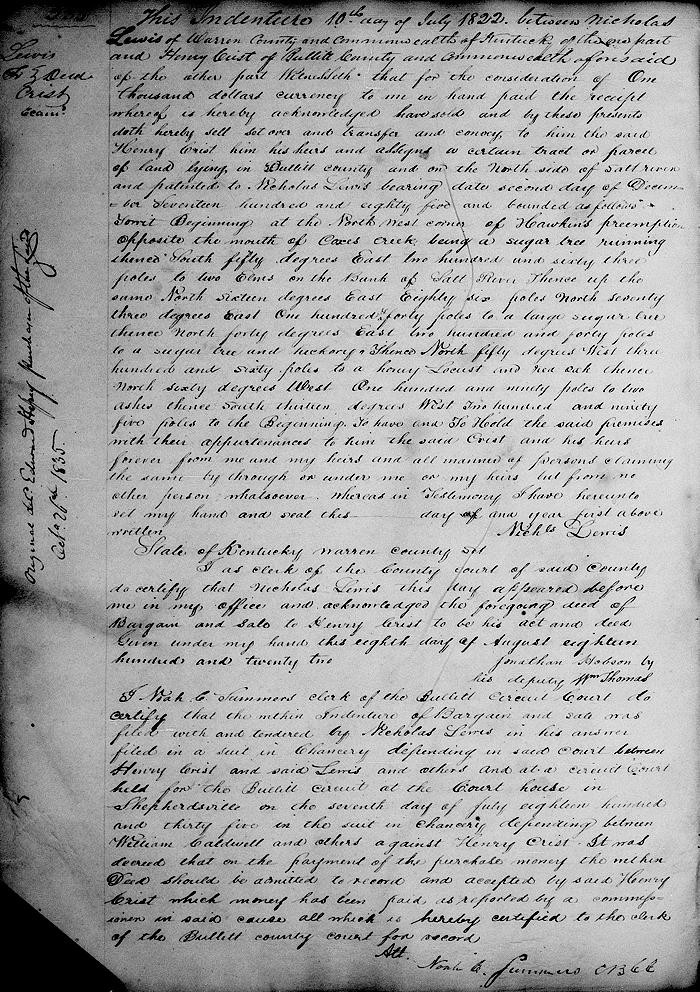 Lewis
To } Deed
Crist
Exam.
This Indenture 10th day of July 1822. between Nicholas
Lewis of Warren County and Commonwealth of Kentucky of the one part
and Henry Crist of Bullitt County and Commonwealth aforesaid
of the other part Witnesseth that for the consideration of One
thousand dollars currency to me in hand paid the receipt
whereof is hereby acknowledged have sold and by these presents
doth hereby sell set over and transfer and convey, to him the said
Henry Crist him his heirs and assigns a certain tract or parcel
of land lying in Bullitt county and on the North side of Salt river
and patented to Nicholas Lewis bearing date second day of Decem-
-ber Seventeen hundred and eighty five and bounded as follows
Towit Beginning at the North West corner of Hawkins preemption
opposite the mouth of Coxes creek being a sugar tree running
thence South fifty degrees East two hundred and sixty three
poles to two Elms on the Bank of Salt River Thence up the
same North Sixteen degrees East Eighty six poles North seventy
three degrees East One hundred forty poles to a large sugar tree
thence North forty degrees East two hundred and forty poles
to a sugar tree and hickory Thence North fifty degrees West three
hundred and sixty poles to a honey Locust and red oak thence
North sixty degrees West One hundred and ninety poles to two
ashes thence South thirteen degrees West Two hundred and ninety
five poles to the Beginning. To have and To Hold the said premises
with their appurtenances to him the said Crist and his heirs
forever from me and my heirs and all manner of persons claiming
the same by through or under me or my heirs but from no
other person whatsoever. whereas in Testimony I have hereunto
set my hand and seal this day of and year first above
written Nichls Lewis
State of Kentucky Warren County Sct
I as clerk of the County Court of said County
do certify that Nicholas Lewis this day appeared before
me in my office and acknowledged the foregoing deed of
Bargain and Sale to Henry Crist to be his act and deed
Given under my hand this eighth day of August eighteen
hundred and twenty two Jonathan Hobson by
his deputy Wm Thomas
I Noah C Summers clerk of the Bullitt Circuit Court do
certify that the within Indenture of Bargain and sale was
filed with and tendered by Nicholas Lewis in his answer
filed in a suit in Chancery depending in said Court between
Henry Crist and said Lewis and others And at a circuit Court
held for the Bullitt circuit at the Court house in
Shepherdsville on the seventh day of July eighteen hundred
and thirty five in the suit in chancery depending between
William Caldwell and others against Henry Crist. It was
decreed that on the payment of the purchase money the within
Deed should be admitted to record and accepted by said Henry
Crist which money has been paid as reported by a commiss-
ioner in said cause all which is hereby certified to the clerk
of the Bullitt county court for record
Att.
Noah C. Summers C B C C
Original del. Edmund purchaser of the land
Octo 26th 1835.